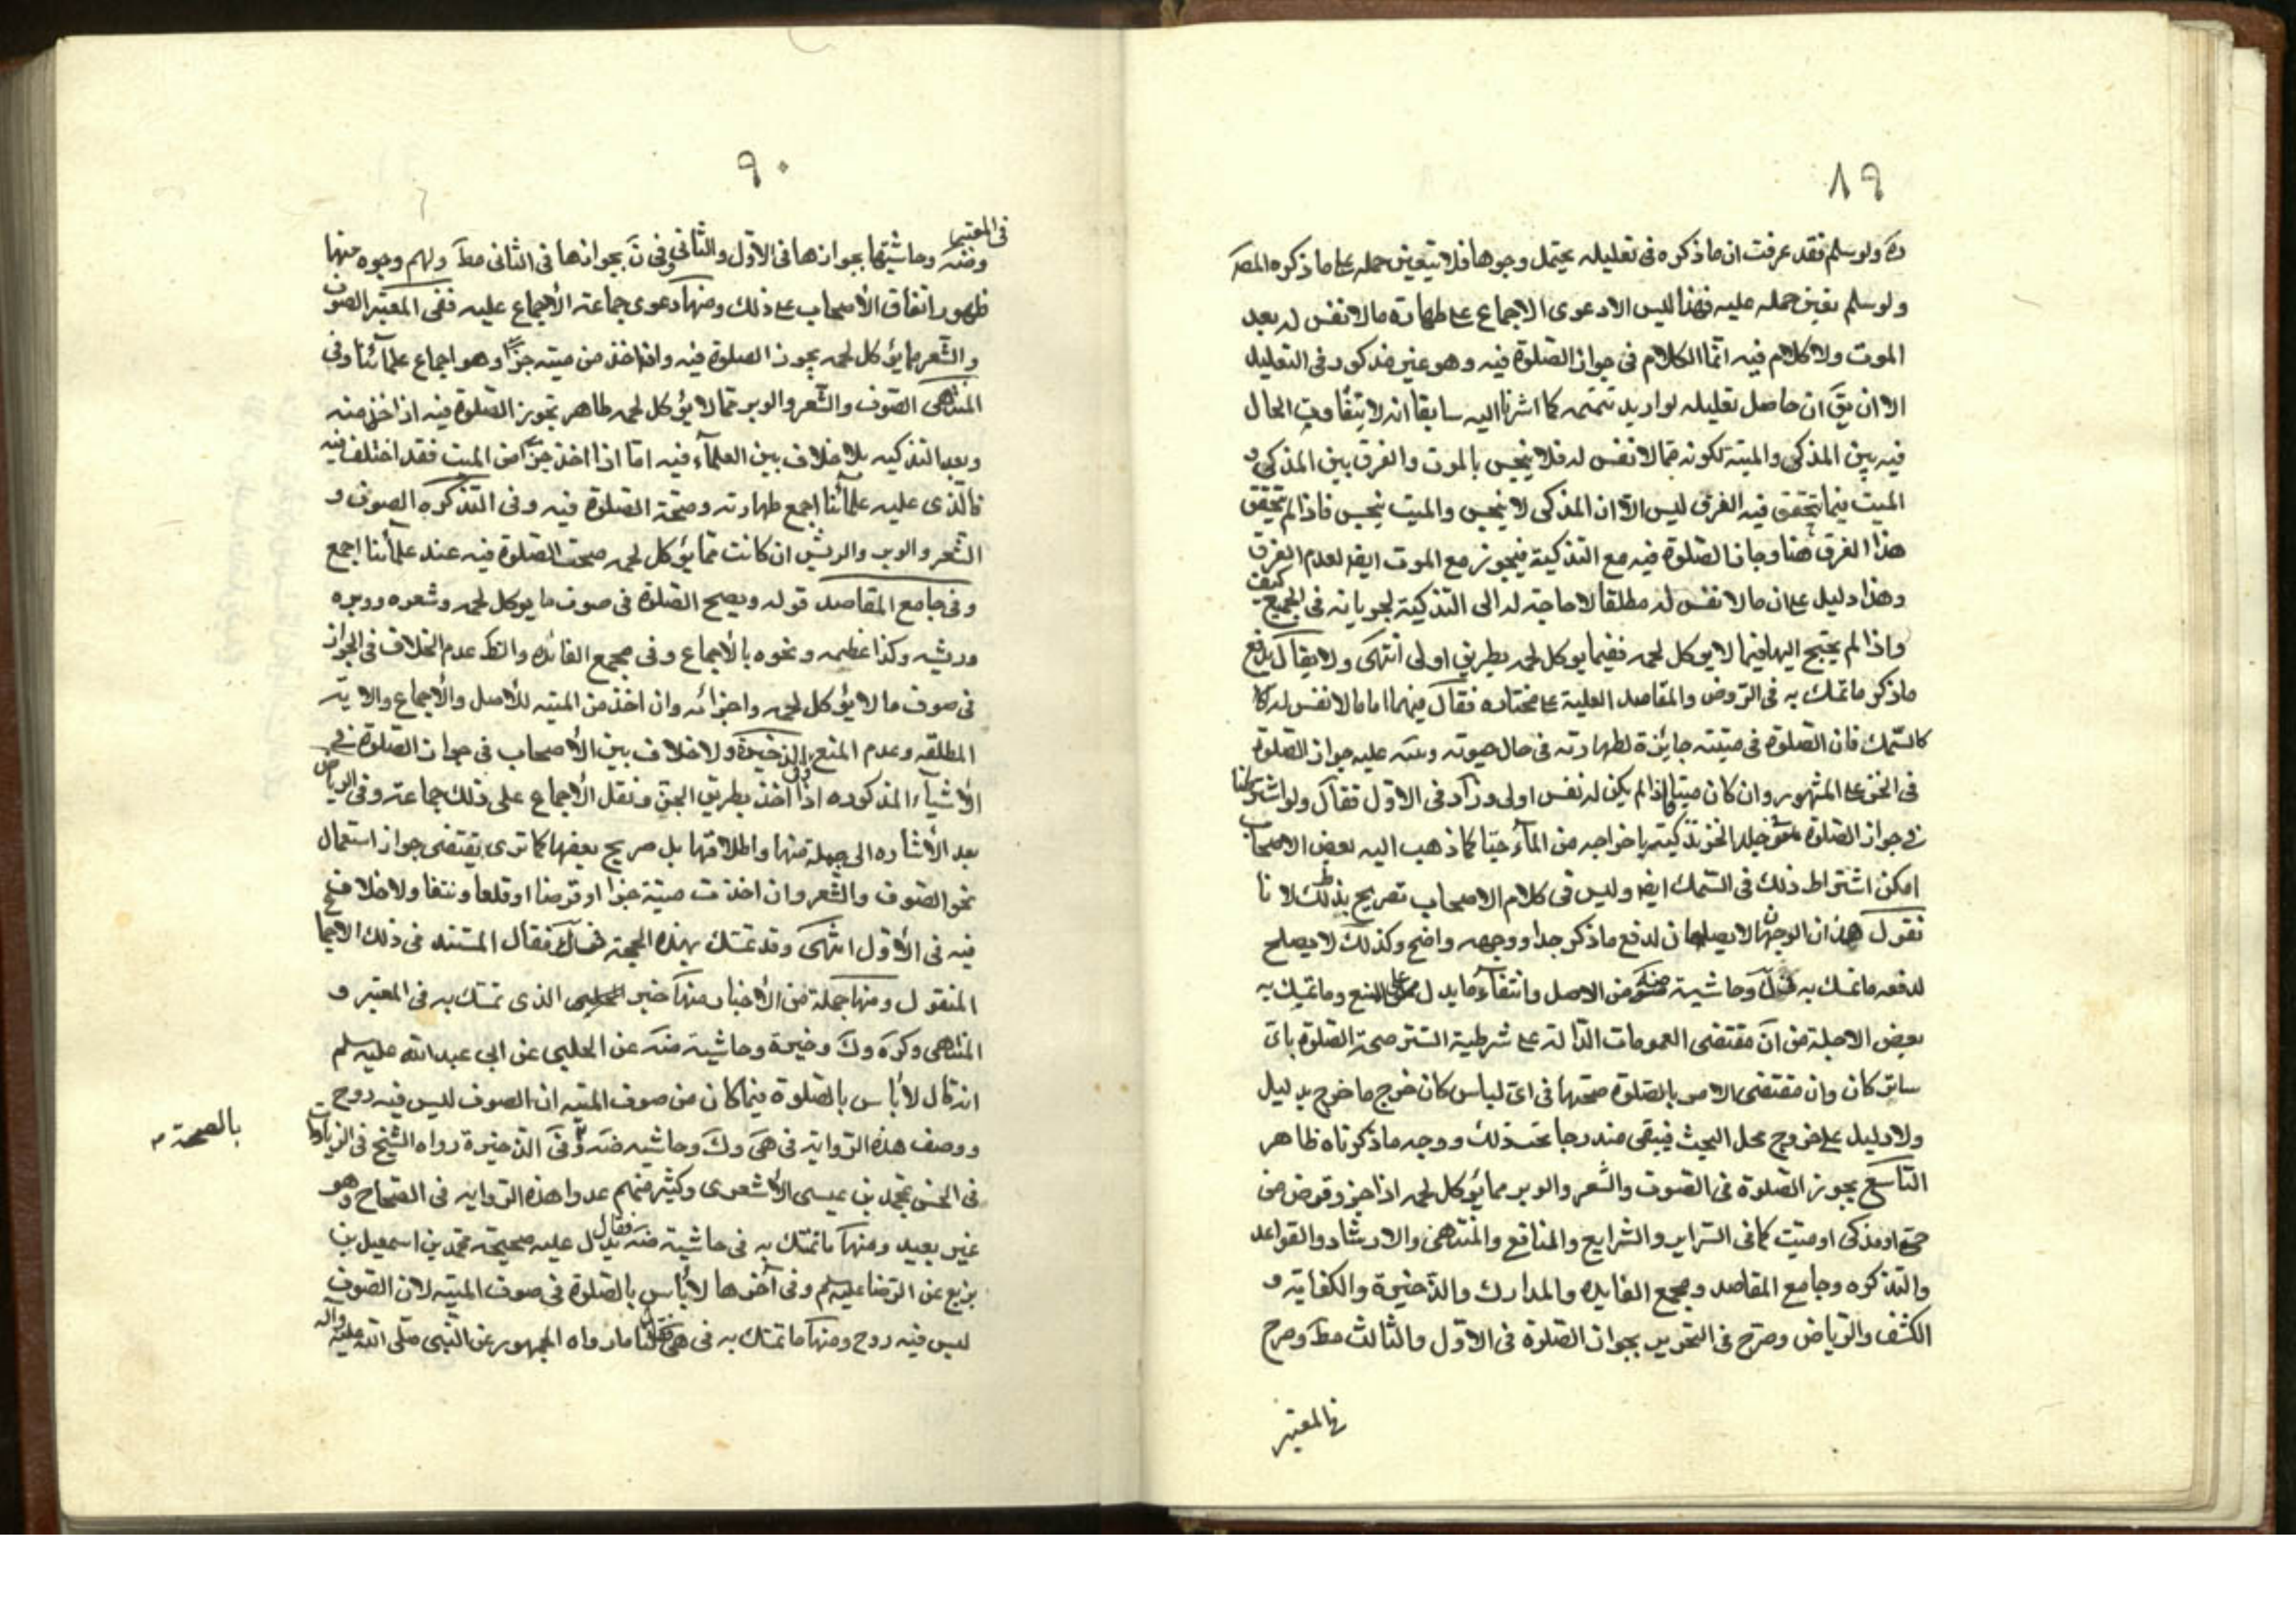 ٨٩
ره ولو سلم فقد عرفت ان ما ذكره فى تعليله يحتمل وجوها فلا يتعين حمله على ما ذكره المصـ
ولو سلم تعين حمله عليه فهذا ليس الا دعوى الاجماع على طهارة ما لا نفس له بعد
الموت ولا كلام فيه انما الكلام فى جواز الصلوة فيه وهو غير مذكور فى التعليل
الا ان يقَ ان حاصل تعليله لو اريد تتمته كما اشرنا اليه سابقا انه لا يتفاوت الحال
فيه بين المذكى والميتة لكونه مما لا نفس له فلا ينجس بالموت والفرق بين المذكى و
الميت فيما يتحقق فيه الفرق ليس الا ان المذكى لا ينجس والميت ينجس فاذا لم يتحقق
هذا الفرق هنا وجاز الصلوة فيه مع التذكية فيجوز مع الموت ايضا لعدم الفرق
وهذا دليل على ان ما لا نفس له مطلقا لا حاجة له الى التذكية لجريانه فى الجميع كيف
واذا لم يحتج اليها فيما لا يوكل لحمه ففيما يوكل لحمه بطريق اولى انتهى ولا يقال يدفع
ما ذكر ما تمسك به فى الروض والمقاصد العلية على مختاره فقال فيهما اما ما لا نفس له كا
كالسمك فان الصلوة فى ميتته جايزة لطهارته فى حال موته ونبه عليه جواز الصلوة
فى الخز على المشهور وان كان ميتا اذا لم يكن له نفس اولى وزاد فى الاول فقال ولو اشترطنا
فى جواز الصلوة فى جلد الخز تذكيته باخراجه من الماء حيّا كما ذهب اليه بعض الاصحاب
امكن اشتراط ذلك فى السمك ايضا وليس فى كلام الاصحاب تصريح بذلك لانا
نقول هذان الوجهان لا يصلحان لدفع ما ذكر جدا ووجهه واضح وكذلك لا يصلح
لدفعه ما تمسك به وحاشية من الاصل وانتفاء ما يدل على المنع وما تمسك به
بعض الاجلة من انّ مقتضى العمومات الدالة على شرطية الستر صحة الصلوة باىّ
ساتر كان وان مقتضى الامر بالصلوة صحتها فى اىّ لباس كان خرج ما خرج بدليل
ولا دليل على خروج محل البحث فيبقى مندرجا تحت ذلك ووجه ما ذكرناه ظاهر
التاسع يجوز الصلوة فى الصوف والشعر والوبر مما يؤكل لحمه اذا جز وقرض من
حىّ او مذكى او ميت كما فى السراير والشرايع والمنافع والمنتهى والارشاد والقواعد
والتذكره وجامع المقاصد ومجمع الفايده والمدارك والذخيرة والكفاية و
الكشف والرياض وصرح فى التحرير بجواز الصلوة فى الاول والثالث مطَ وصرح
فى المعتبر
٩٠
فى المعتبر
وضَه وحاشيتها بجوازها فى الاول والثانى وفى نَ بجوازها فى الثانى مطَ ولهم وجوه منها
ظهور اتفاق الأصحاب على ذلك ومنها دعوى جماعة الأجماع عليه ففى المعتبر الصوف
والشعر مما يؤكل لحمه يجوز الصلوة فيه وان اخذ من ميته جزّا وهو اجماع علمائنا وفى
المنتهى الصوف والشعر والوبر مما لا يؤكل لحمه طاهر تجوز الصلوة فيه اذا اخذ منه
وبعد التذكيه بلا خلاف بين العلماء فيه امّا اذا اخذ جزّا من الميت فقد اختلف فيه
فالذى عليه علمائنا اجمع طهارته وصحة الصلوة فيه وفى التذكره الصوف و
الشعر والوبر والريش ان كانت مما يؤكل لحمه صحت الصلوة فيه عند علمائنا اجمع
وفى جامع المقاصد قوله ويصح الصلوة فى صوف ما يوكل لحمه وشعره ووبره
وريشه وكذا عظيمه ونحوه بالأجماع وفى مجمع الفائده والظ عدم الخلاف فى الجواز
فى صوف ما لا يؤكل لحمه واجزائه وان اخذ من الميته للأصل والأجماع والايته
المطلقه وعدم المنع وفى الذخيرة ولا خلاف بين الأصحاب فى جواز الصلوة فى
الأشياء المذكوره اذا اخذ بطريق الجز ونقل الأجماع على ذلك جماعة وفى الرياض
بعد الأشاره الى جملة منها واطلاقها بل صريح بعضها كما ترى يقتضى جواز استعمال
نحو الصوف والشعر وان اخذت ميتة جزا او قرضا او قلعا ونتفا ولا خلاف
فيه فى الأول انتهى وقد تمسك بهذه الحجة فقال المستند فى ذلك الاجما
المنقول ومنها جملة من الأخبار منها خبر الحلبى الذى تمسك به فى المعتبر و
المنتهى وكره وكَ وخيرة وحاشية ضَه عن الحلبى عن ابى عبد الله عليه سلم
انه قال لا بأس بالصلوة فيما كان من صوف الميته ان الصوف ليس فيه روح
ووصف هذه الرواية فى هىَ وكَ وحاشيه ضَه وفى الذخيرة رواه الشيخ فى الزيادات
بالصحة م
فى الحسن بمحمد بن عيسى الأشعرى وكثير منهم عدوا هذه الروايه فى الصحاح وهو
غير بعيد ومنها ما تمسك به فى حاشية ضَه فقال يدل عليه صحيحة محمد بن اسمعيل بن
بزيع عن الرضا عليه سلم وفى آخرها لا بأس بالصلوة فى صوف الميته لان الصوف
ليس فيه روح ومنها ما تمسك به فى هىَ فقال لنا ما رواه الجمهور عن النبى صلى الله عليه وآله